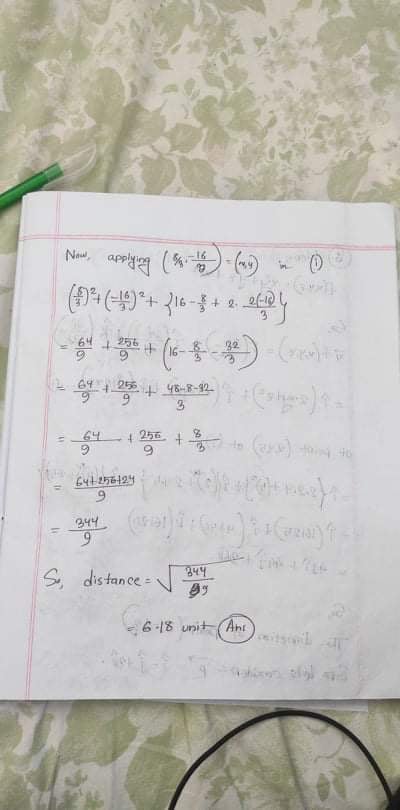 Now, applying (8/3, -16/3) = (x,y) in (i)
(8/3)² + (-16/3)² + {16 - 8/3 + 2. 2(-16)/3}
= 64/9 + 256/9 + (16 - 8/3 - 32/3)
= 64/9 + 256/9 + 48-8-32/3
= 64/9 + 256/9 + 8/3
= 64+256+24/9
= 344/9
So, distance = √344/9
= 6.18 unit (Ans)